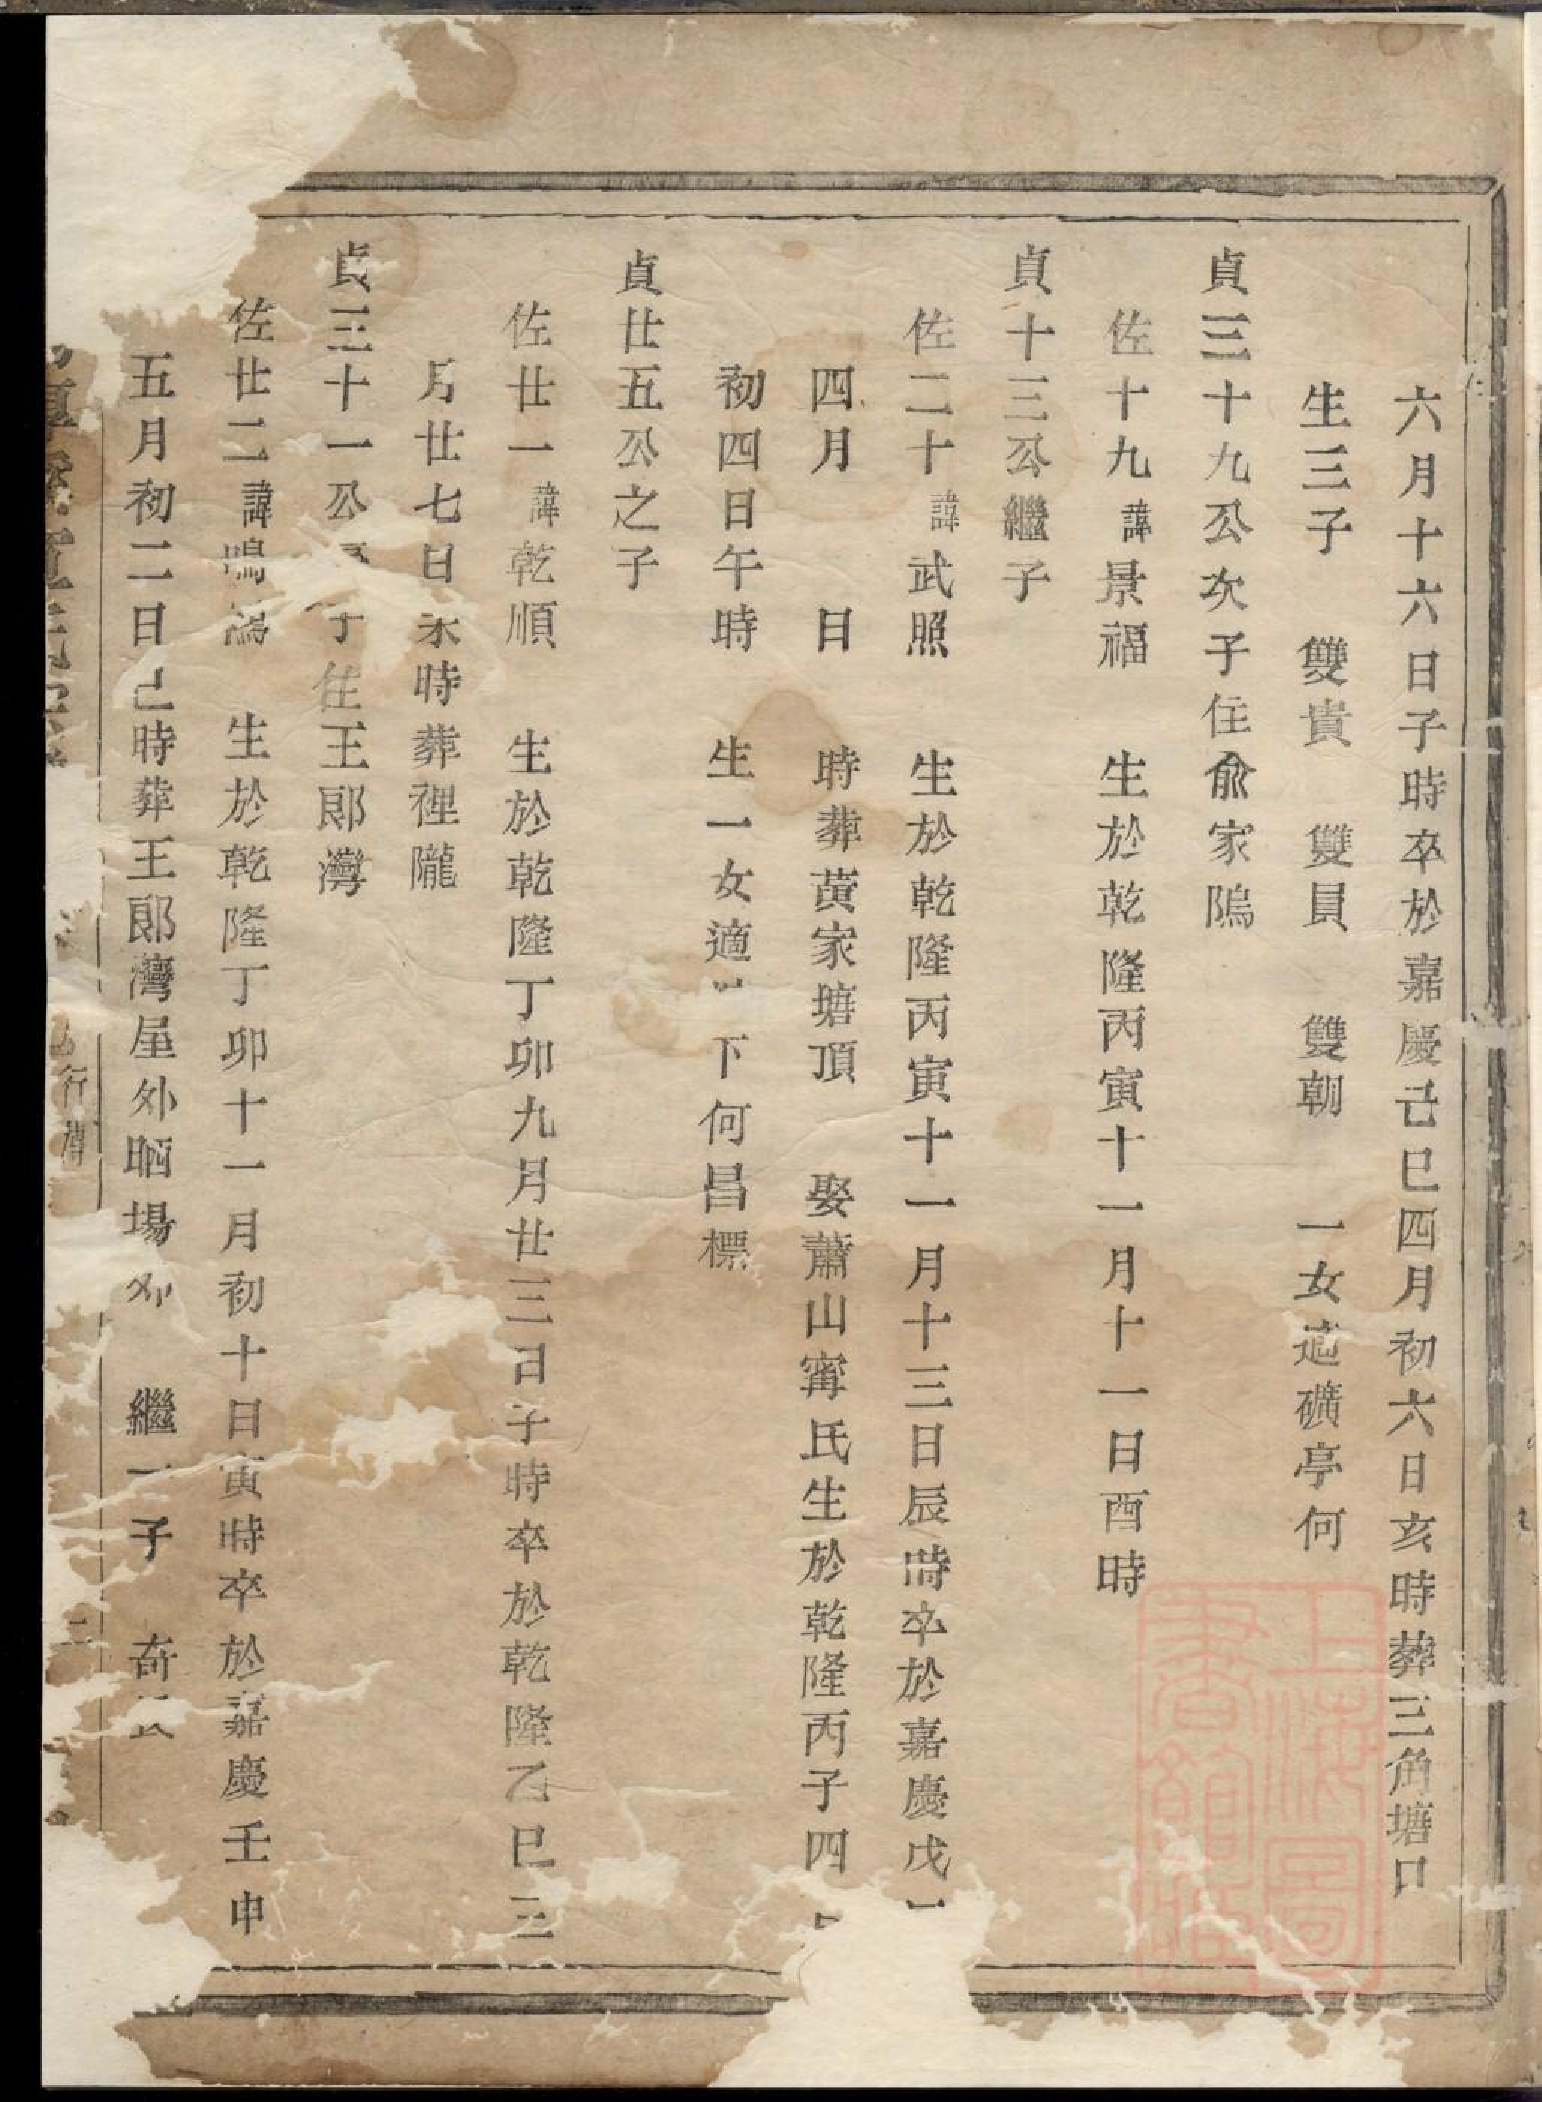 六月十六日子時卒於嘉慶己巳四月初六日亥時葬三角塘口
生三子 雙貴 雙員 雙朝 一女適礦亭何
貞三十九公次子住俞家隖
佐十九諱景福 生於乾隆丙寅十一月十一日酉時
貞十三公繼子
佐二十諱武照 生於乾隆丙寅十一月十三日辰時卒於嘉慶戊
四月 日 時葬黄家塘頂 娶蕭山甯氏生於乾隆丙子四
初四日午時 生一女適 下何昌標
貞廿五公之子
佐廿一諱乾順 生於乾隆丁卯九月廿三日子時卒於乾隆乙巳三
月廿七日未時葬裡隴
貞三十一公 子住王郎灣
佐廿二諱鳴 生於乾隆丁卯十一月初十日寅時卒於嘉慶壬申
五月初二日巳時葬王郎灣屋外晒塲外 繼一子 奇
行傳
二
上海圖書館藏